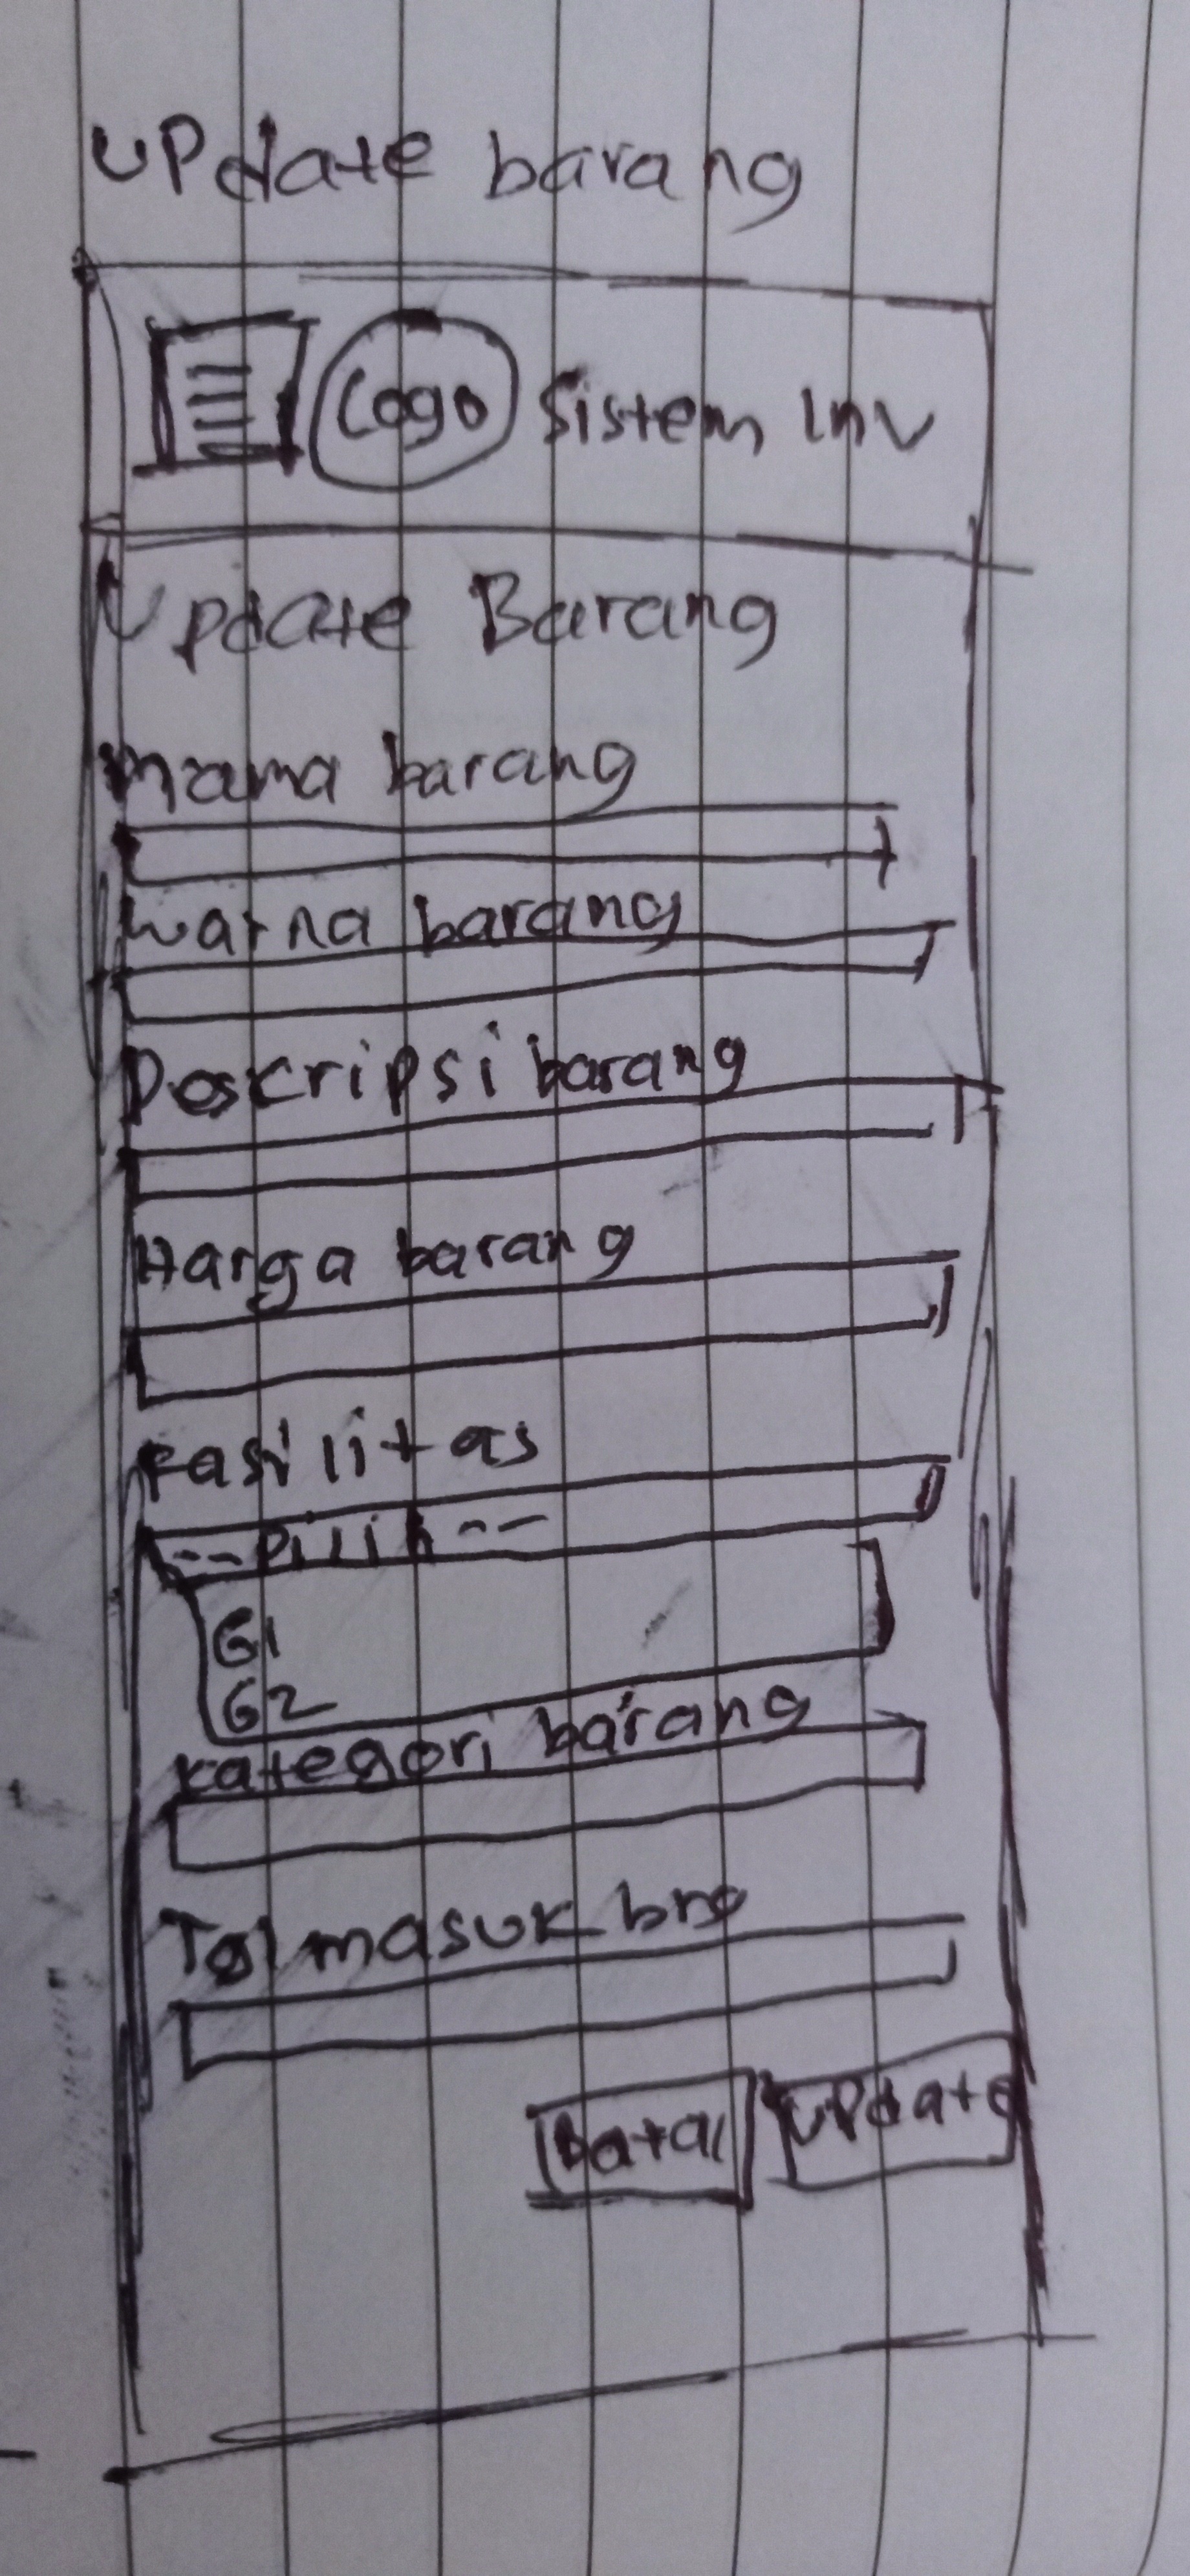 UPdate barang
Logo Sistem Inv
Update Barang
Nama barang
Warna barang
Deskripsi barang
Harga barang
Fasilitas
--Pilih--
G1
G2
Kategori barang
Tgl masuk brg
Batal UPdate